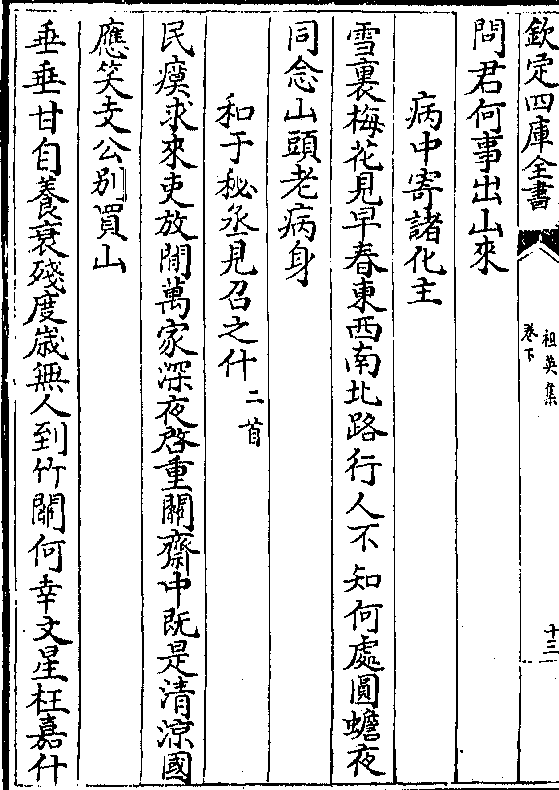 欽定四庫全書
祖英集
卷下
十三
問君何事出山來
病中寄諸化主
雪裏梅花見早春東西南北路行人不知何處圓蟾夜
同念山頭老病身
和于秘丞見召之什二首
民瘼求來吏放閒萬家深夜啓重關齋中既是清涼國
應笑支公別買山
垂垂甘自養衰殘度歲無人到竹關何幸文星枉嘉什